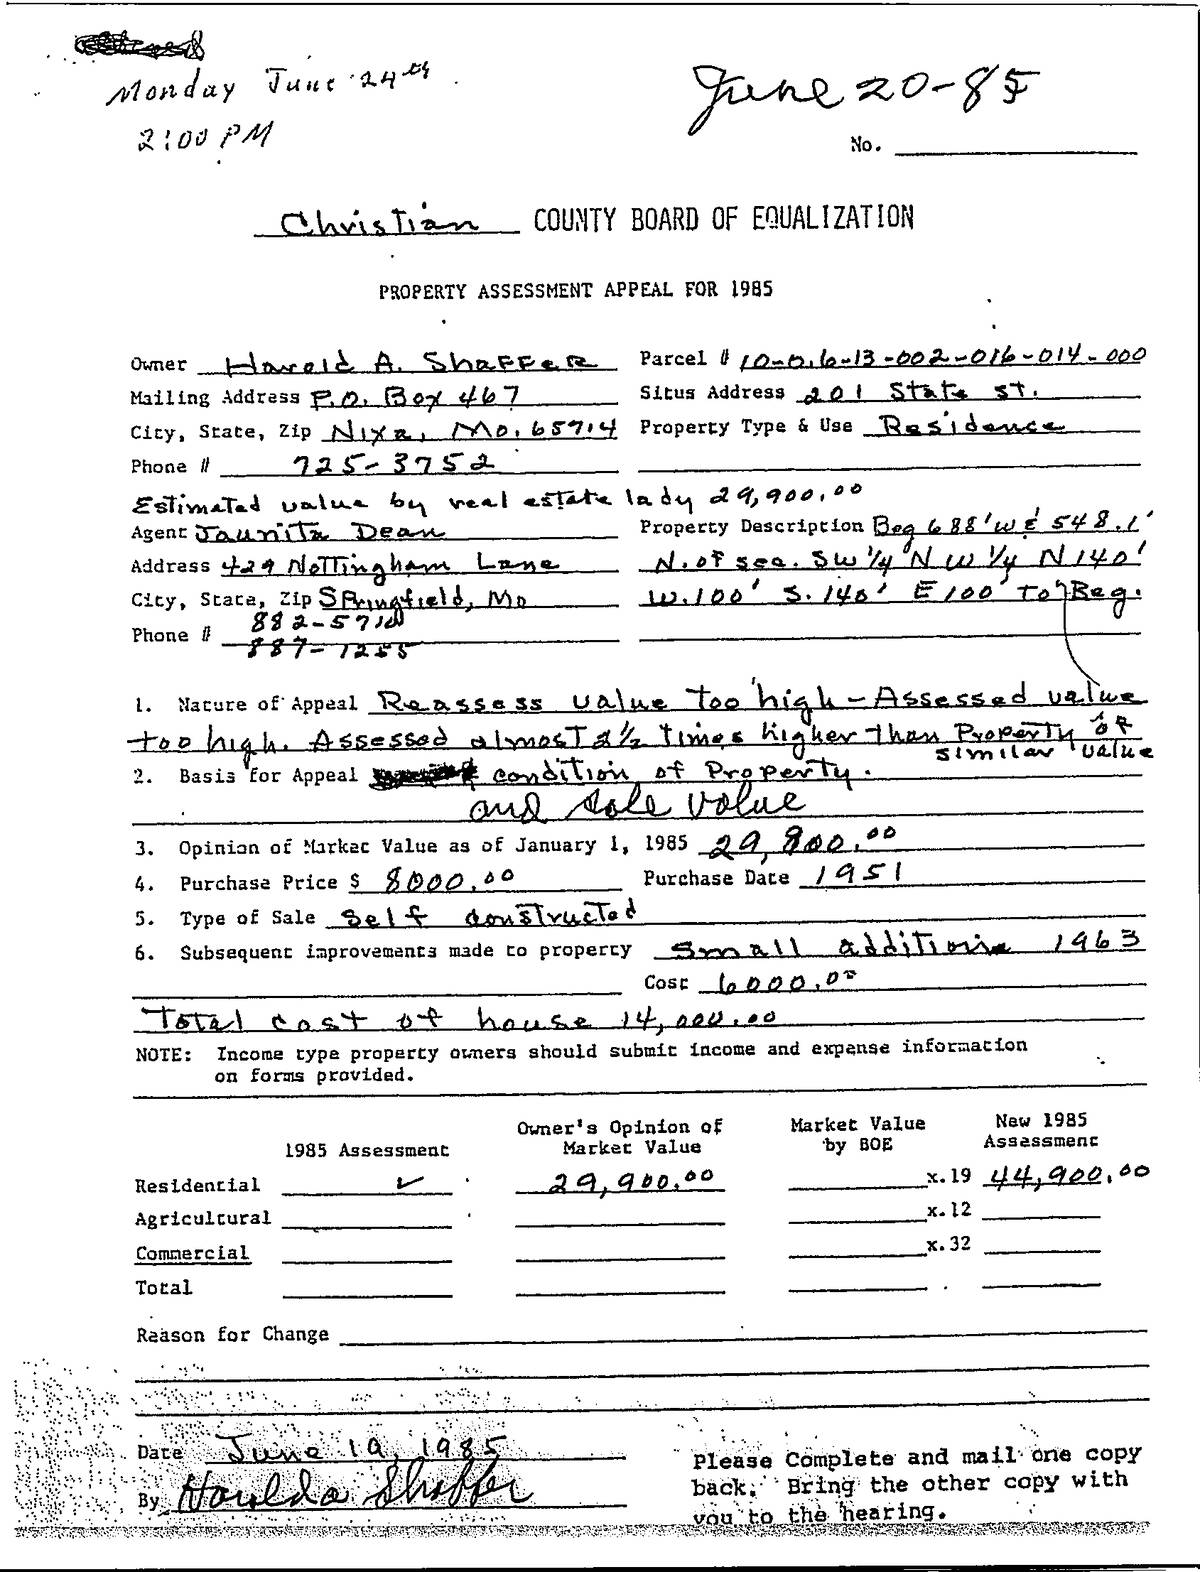 Monday June 24th
2:00 PM
June 20-85
No.
Christian COUNTY BOARD OF EQUALIZATION
PROPERTY ASSESSMENT APPEAL FOR 1985
Owner Harold A. Shaffer Parcel # 10-0.6-13-002-016-014-000
Mailing Address P.O. Box 467 Situs Address 201 State St.
City, State, Zip Nixa, Mo. 65714 Property Type & Use Residence
Phone # 725-3752
Estimated value by real estate lady 29,900.00
Agent Jaunita Dean Property Description Beg 688' W & 548.1'
Address 429 Nottingham Lane N. of sec. SW 1/4 NW 1/4 N 140'
City, State, Zip Springfield, Mo W. 100' S. 140' E 100' To Beg.
882-5710
Phone # 887-1255
1. Nature of Appeal Reassess value too high - Assessed value
too high. Assessed almost 2 1/2 times higher than Property of
similar value
2. Basis for Appeal condition of Property.
and sale value
3. Opinion of Market Value as of January 1, 1985 29,800.00
4. Purchase Price $ 8000.00 Purchase Date 1951
5. Type of Sale Self constructed
6. Subsequent improvements made to property small additions 1963
Cost 6000.00
Total cost of house 14,000.00
NOTE: Income type property owners should submit income and expense information
on forms provided.
1985 Assessment Owner's Opinion of Market Value Market Value by BOE New 1985 Assessment
Residential ✓ 29,900.00 x.19 44,900.00
Agricultural x.12
Commercial x.32
Total
Reason for Change
Date June 19, 1985
By Harold A Shaffer
Please Complete and mail one copy
back. Bring the other copy with
you to the hearing.